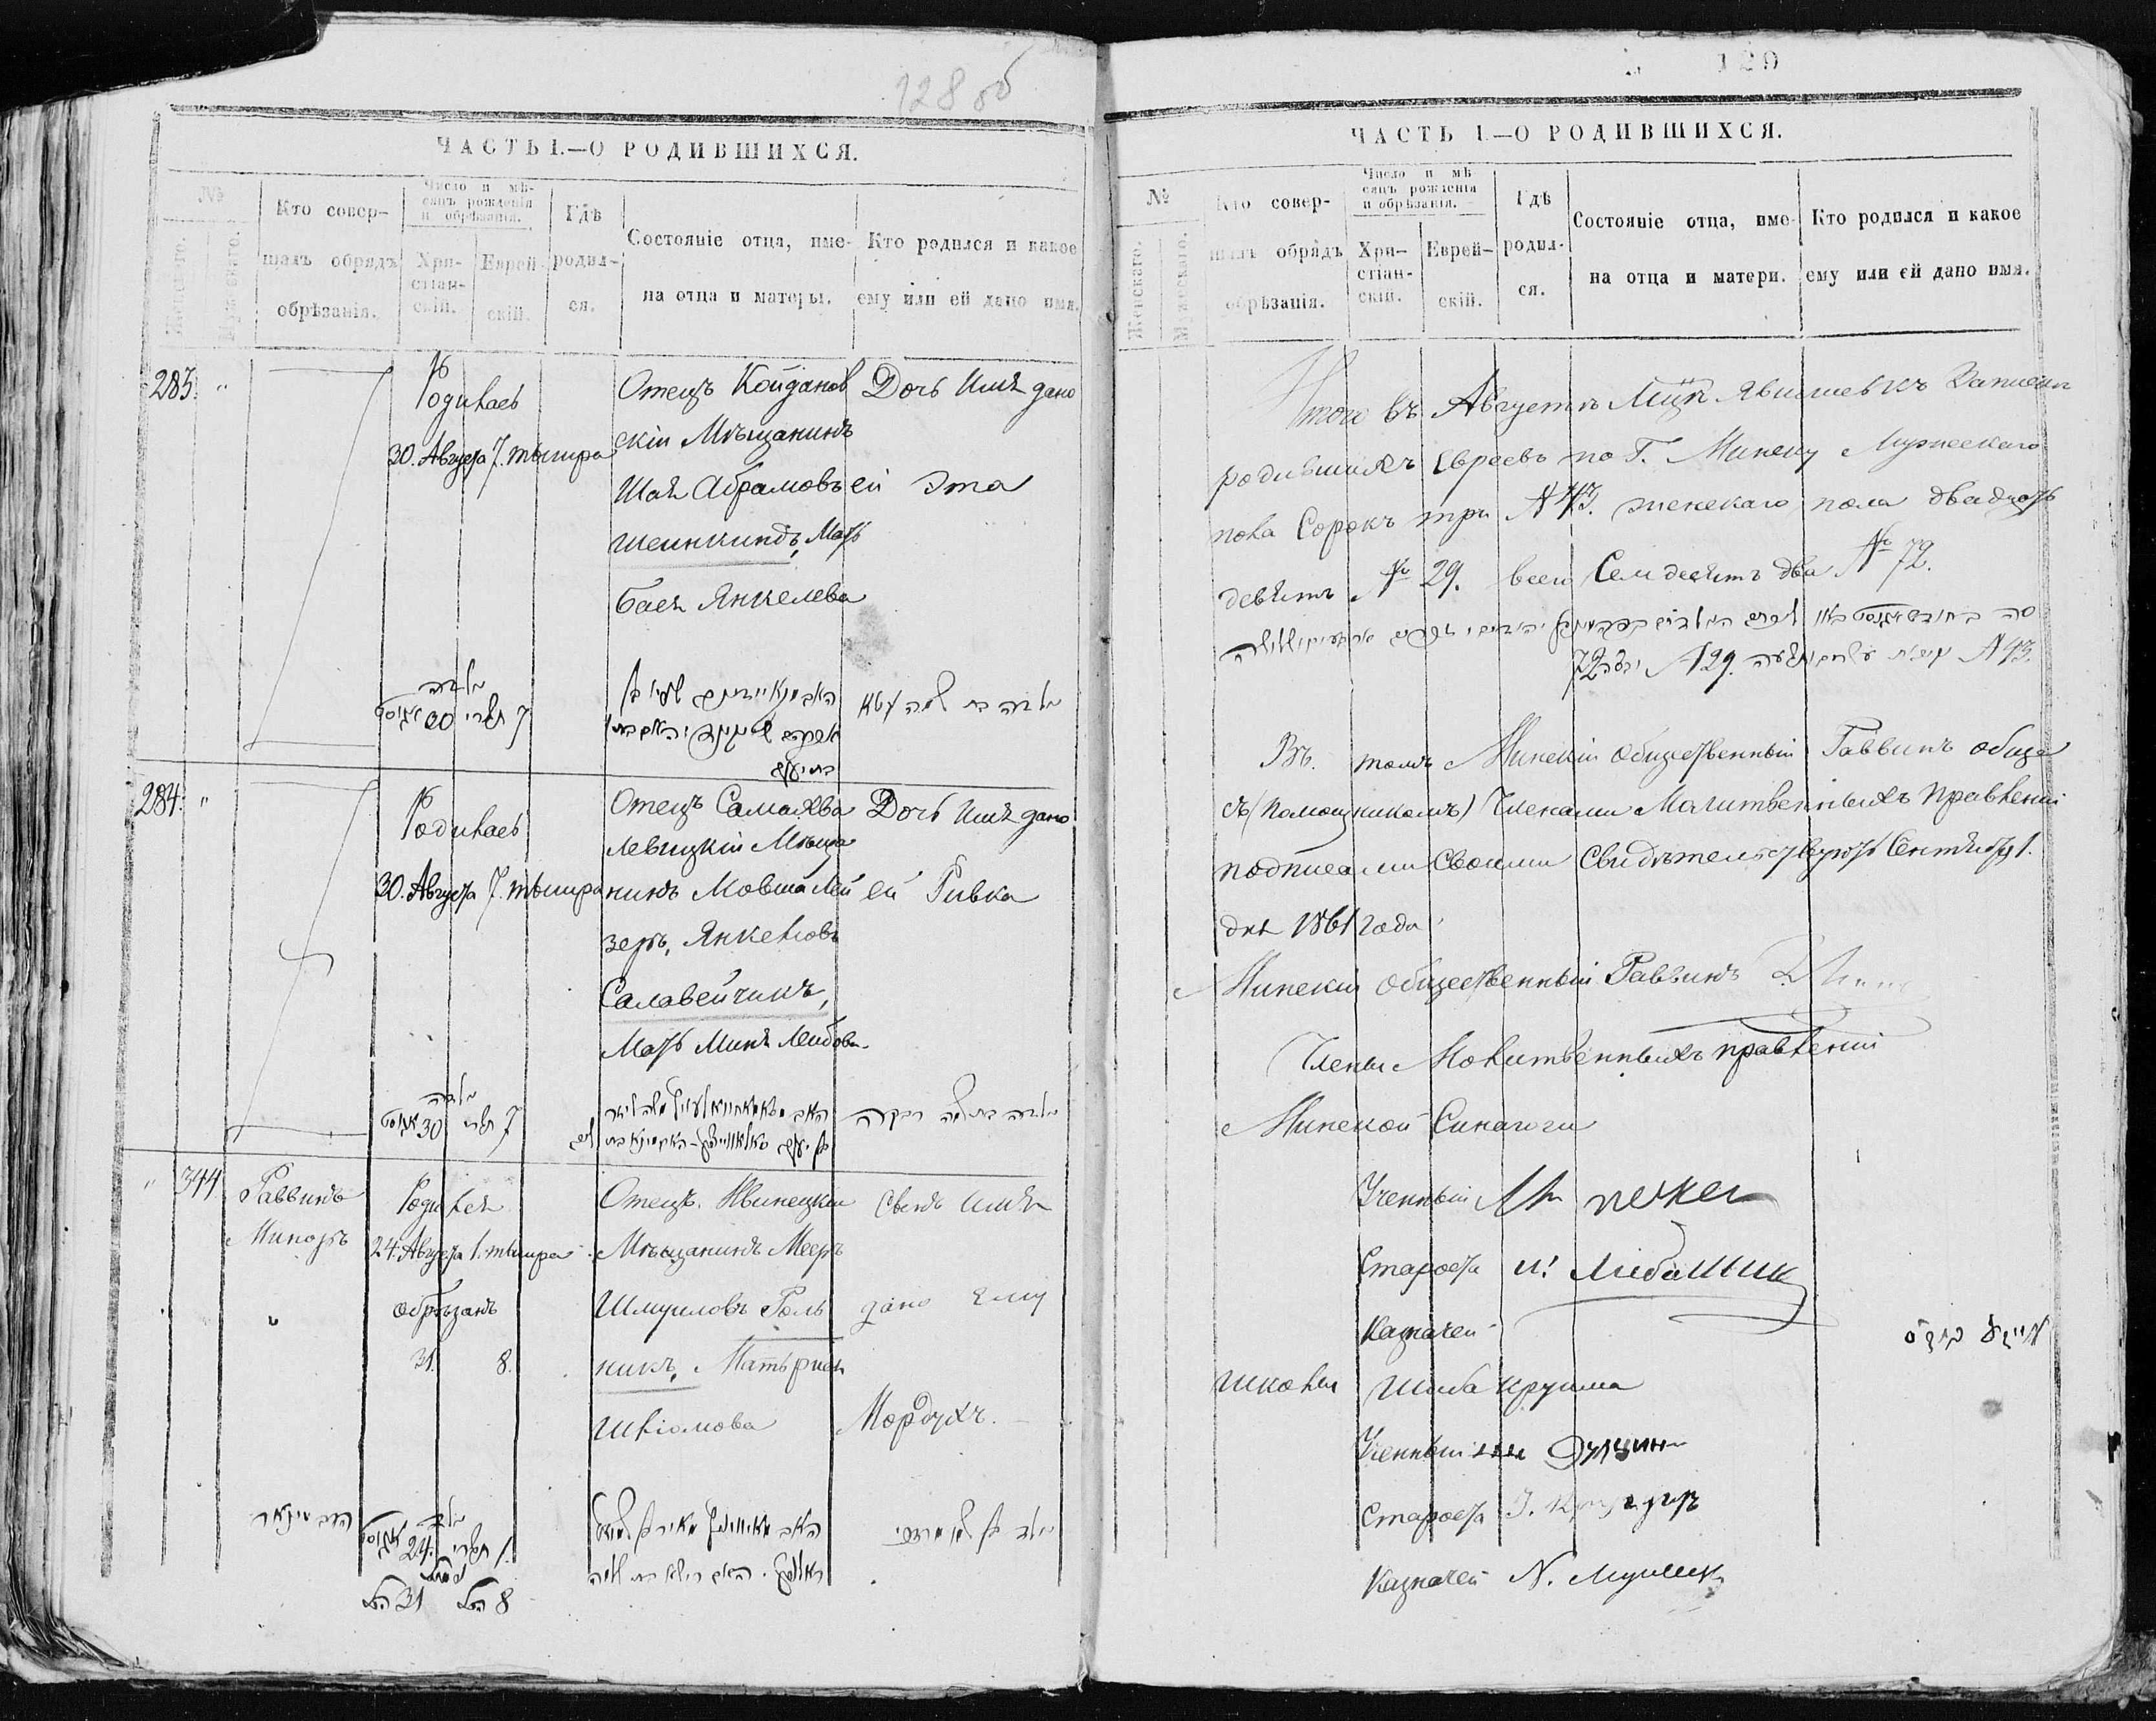 128 об
ЧАСТЬ I.—О РОДИВШИХСЯ.
№
Женскаго.
Мужескаго.
Кто совер-
шалъ обрядъ
обрѣзанія.
Число и мѣ-
сяцъ рожденія
и обрѣзанія.
Хри-
стіан-
скій.
Еврей-
скій.
Гдѣ
родил-
ся.
Состояніе отца, име-
на отца и матери.
Кто родился и какое
ему или ей дано имя.
283. "
Родилась
30. Августа 7. тышра
Отецъ Койданов
скій Мѣщанинъ
Шая Абрамовъ
Шеинкиндъ, Мать
Бася Янкелева
Дочь Имя дано
ей Эта
נולדה
7 תשרי 30 אגוסט
נולדה בת שמה עטא
284. "
Родилась
30. Августа 7. тышра
Отецъ Самахва
левицкій Мѣща
нинъ Мовша Лей
зеръ, Янкелевъ
Салавейчикъ,
Мать Миня Лейбова
Дочь Имя дано
ей Ривка
נולדה
7 תשרי 30 אגוסט
נולדה בת שמה רבקה
" 344
Раввинъ
Миноръ
Родился
24. Августа 1. тышра
Обрѣзанъ
31. 8.
Отецъ. Ивинецкій
Мѣщанинъ Мееръ
Шмуиловъ Голь
никъ, Мать Рися
Шліомова
Сынъ Имя
дано Ему
Мордухъ.
הרב מינאר
נולד
1 תשרי 24 אגוסט
נימול
8 הנ"ל 31 הנ"ל
129
ЧАСТЬ I.—О РОДИВШИХСЯ.
№
Женскаго.
Мужескаго.
Кто совер-
шалъ обрядъ
обрѣзанія.
Число и мѣ-
сяцъ рожденія
и обрѣзанія.
Хри-
стіан-
скій.
Еврей-
скій.
Гдѣ
родил-
ся.
Состояніе отца, име-
на отца и матери.
Кто родился и какое
ему или ей дано имя.
Итого въ Августѣ Мцѣ Явилось къ Записки
родившихъ Евреевъ по Г. Минску Мужескаго
пола Сорокъ три № 43. женскаго пола двадцать
девять № 29. всего Семдесятъ два № 72.
Въ томъ Минскій Общественный Раввинъ обще
съ (помощникомъ) Членами Молитвенныхъ Правленій
подписами Своими Свидѣтельствуютъ Сентября 1.
дня 1861 года
Минскій Общественный Раввинъ
Члены Молитвенныхъ правленій
Минской Синагоги
Ученный
Староста И. Либашиц
Казначей
школы Шиба круппа
Ученный
Староста
Казначей